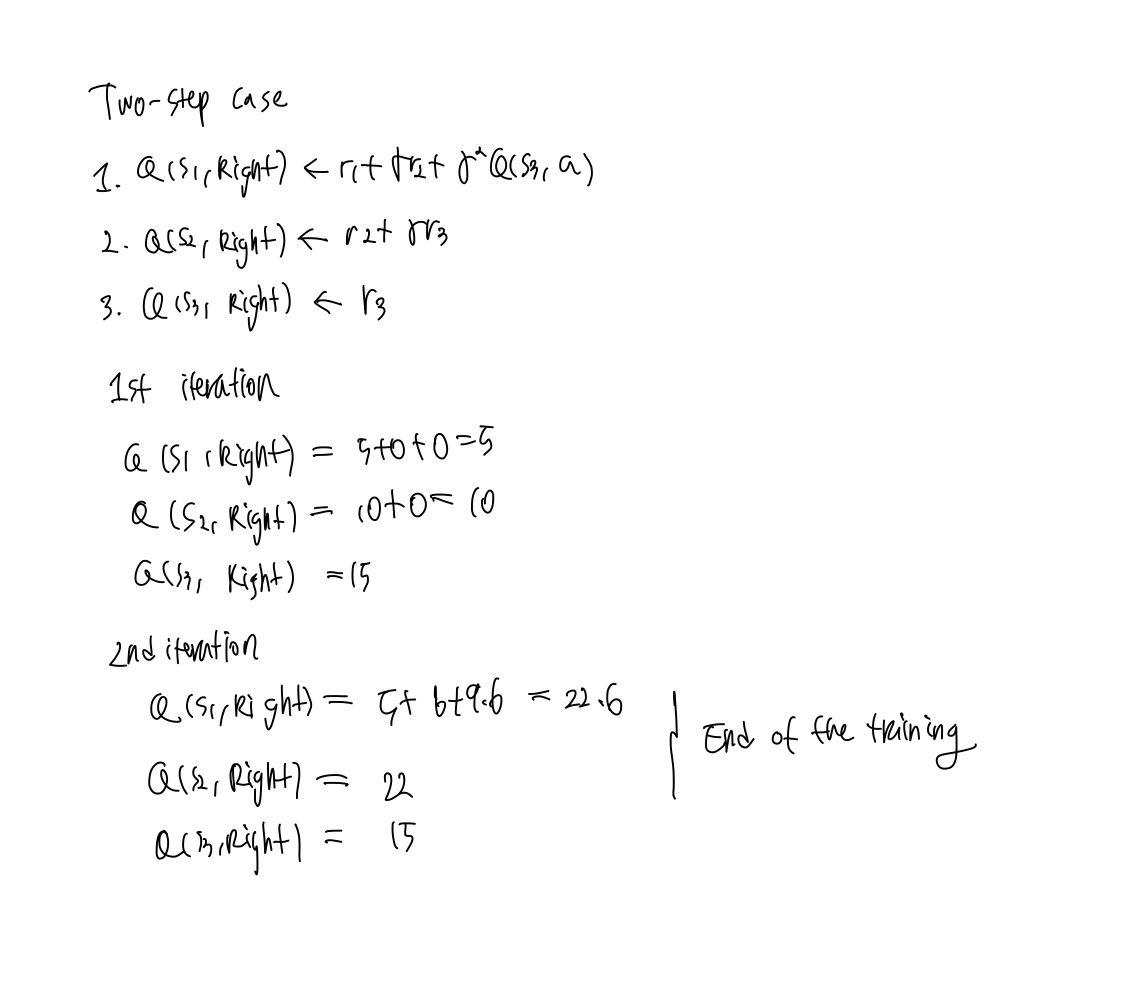 Two-step case
1. Q(S1, Right) ← r1 + γr2 + γ²Q(S3, a)
2. Q(S2, Right) ← r2 + γr3
3. Q(S3, Right) ← r3
1st iteration
Q(S1, Right) = 5+0+0=5
Q(S2, Right) = 10+0=10
Q(S3, Right) =15
2nd iteration
Q(S1, Right) = 5+ 6+9.6 = 22.6
Q(S2, Right) = 22
Q(S3, Right) = 15
End of the training